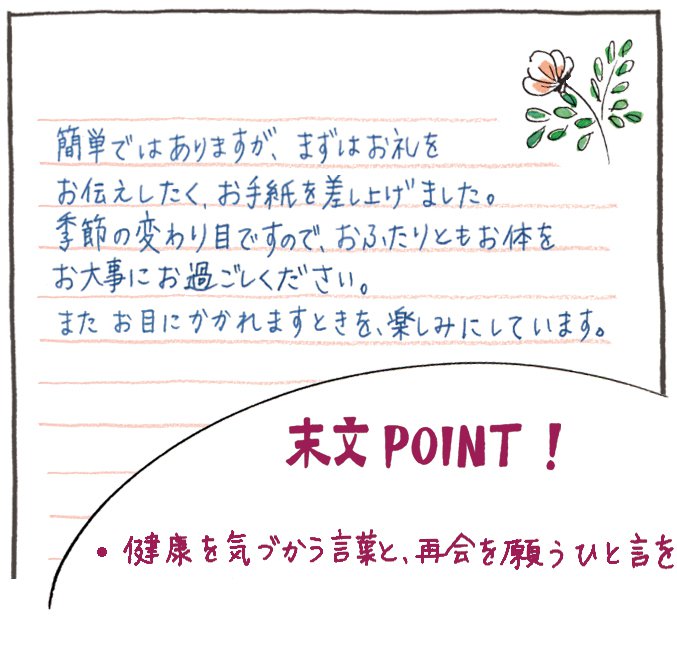 簡単ではありますが、まずはお礼を
お伝えしたく、お手紙を差し上げました。
季節の変わり目ですので、おふたりともお体を
お大事にお過ごしください。
また お目にかかれますときを、楽しみにしています。
末文POINT！
• 健康を気づかう言葉と、再会を願うひと言を